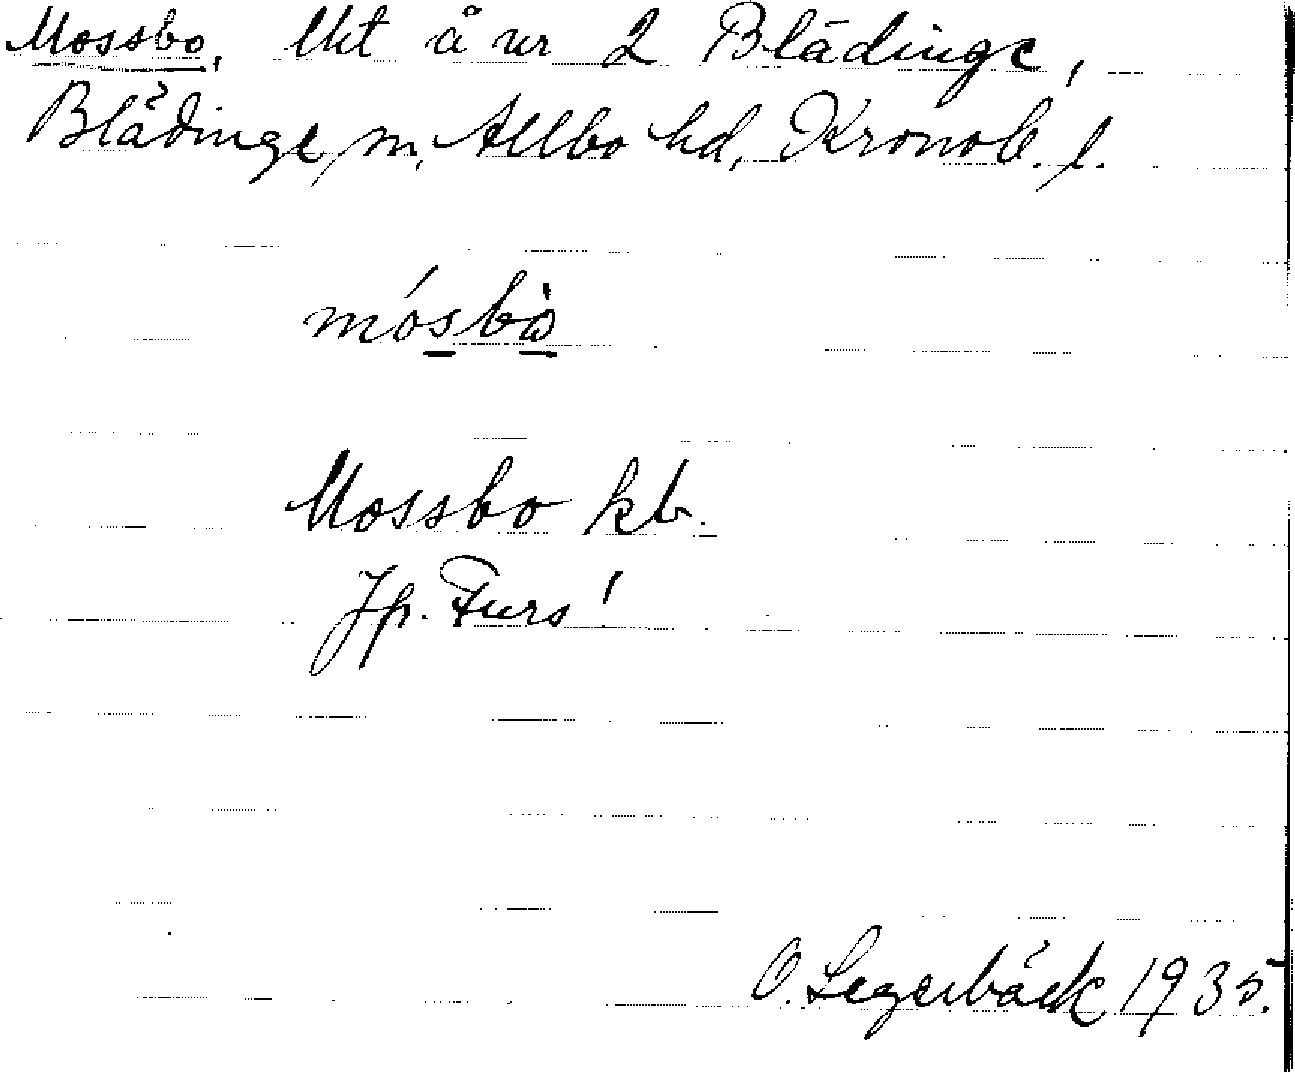 Mossbo, Uht å nr 2 Blädinge,
Blädinge, m, Allbo hd, Kronob. l.
mósbò
Mossbo kb.
Jp. Furs!
O. Legerbäck 1935.